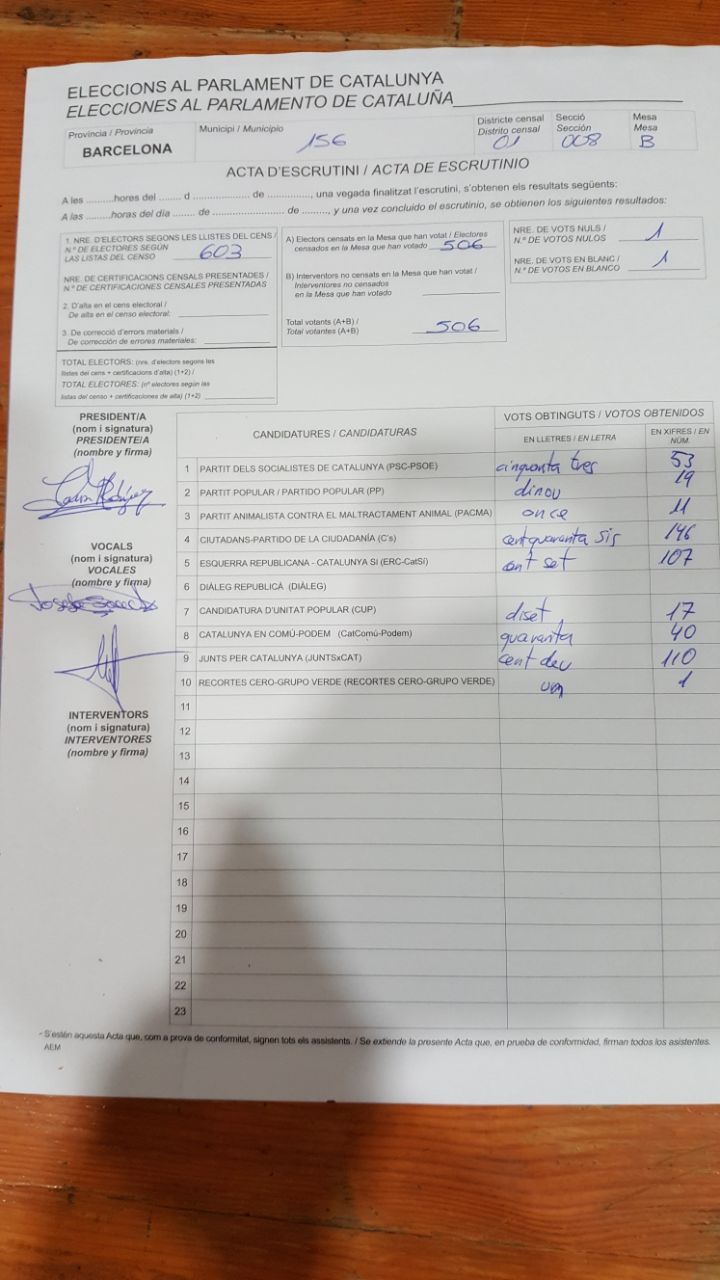 ELECCIONS AL PARLAMENT DE CATALUNYA
ELECCIONES AL PARLAMENTO DE CATALUÑA
Provincia / Provincia
BARCELONA
Municipi / Municipio
156
Districte censal
Distrito censal
01
Secció
Sección
008
Mesa
Mesa
B
ACTA D'ESCRUTINI / ACTA DE ESCRUTINIO
A les ..........hores del ...... d .................... de ..............., una vegada finalitzat l'escrutini, s'obtenen els resultats següents:
A las .........horas del día ....... de .......................... de ........., y una vez concluido el escrutinio, se obtienen los siguientes resultados:
1. NRE. D'ELECTORS SEGONS LES LLISTES DEL CENS /
N.º DE ELECTORES SEGÚN
LAS LISTAS DEL CENSO 603
NRE. DE CERTIFICACIONS CENSALS PRESENTADES /
N.º DE CERTIFICACIONES CENSALES PRESENTADAS
2. D'alta en el cens electoral /
De alta en el censo electoral:
3. De correcció d'errors materials /
De corrección de errores materiales:
TOTAL ELECTORS: (nre. d'electors segons les
llistes del cens + certificacions d'alta) (1+2) /
TOTAL ELECTORES: (nº electores según las
listas del censo + certificaciones de alta) (1+2)
A) Electors censats en la Mesa que han votat / Electores
censados en la Mesa que han votado 506
B) Interventors no censats en la Mesa que han votat /
Interventores no censados
en la Mesa que han votado
Total votants (A+B) /
Total votantes (A+B) 506
NRE. DE VOTS NULS /
N.º DE VOTOS NULOS 1
NRE. DE VOTS EN BLANC /
N.º DE VOTOS EN BLANCO 1
PRESIDENT/A
(nom i signatura)
PRESIDENTE/A
(nombre y firma)
VOCALS
(nom i signatura)
VOCALES
(nombre y firma)
INTERVENTORS
(nom i signatura)
INTERVENTORES
(nombre y firma)
CANDIDATURES / CANDIDATURAS
VOTS OBTINGUTS / VOTOS OBTENIDOS
EN LLETRES / EN LETRA
EN XIFRES / EN NÚM.
1 PARTIT DELS SOCIALISTES DE CATALUNYA (PSC-PSOE) cinquanta tres 53
2 PARTIT POPULAR / PARTIDO POPULAR (PP) dinou 19
3 PARTIT ANIMALISTA CONTRA EL MALTRACTAMENT ANIMAL (PACMA) once 11
4 CIUTADANS-PARTIDO DE LA CIUDADANÍA (C's) cent quaranta sis 146
5 ESQUERRA REPUBLICANA - CATALUNYA SÍ (ERC-CatSí) cent set 107
6 DIÀLEG REPUBLICÀ (DIÀLEG)
7 CANDIDATURA D'UNITAT POPULAR (CUP) diset 17
8 CATALUNYA EN COMÚ-PODEM (CatComú-Podem) quaranta 40
9 JUNTS PER CATALUNYA (JUNTSxCAT) cent deu 110
10 RECORTES CERO-GRUPO VERDE (RECORTES CERO-GRUPO VERDE) un 1
11
12
13
14
15
16
17
18
19
20
21
22
23
- S'estén aquesta Acta que, com a prova de conformitat, signen tots els assistents. / Se extiende la presente Acta que, en prueba de conformidad, firman todos los asistentes.
AEM